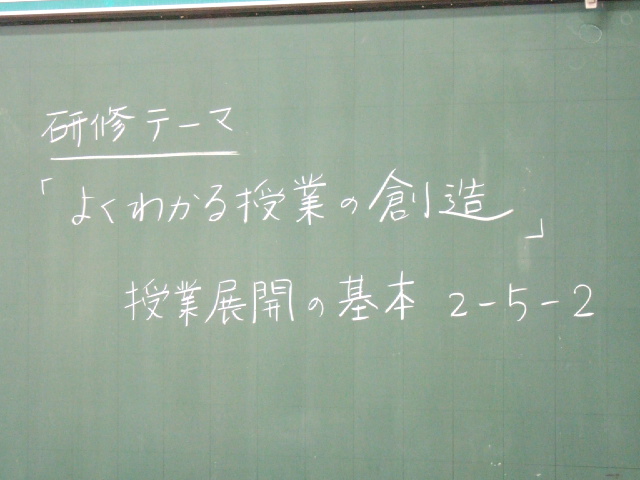 研修テーマ
「よくわかる授業の創造」
授業展開の基本 2-5-2